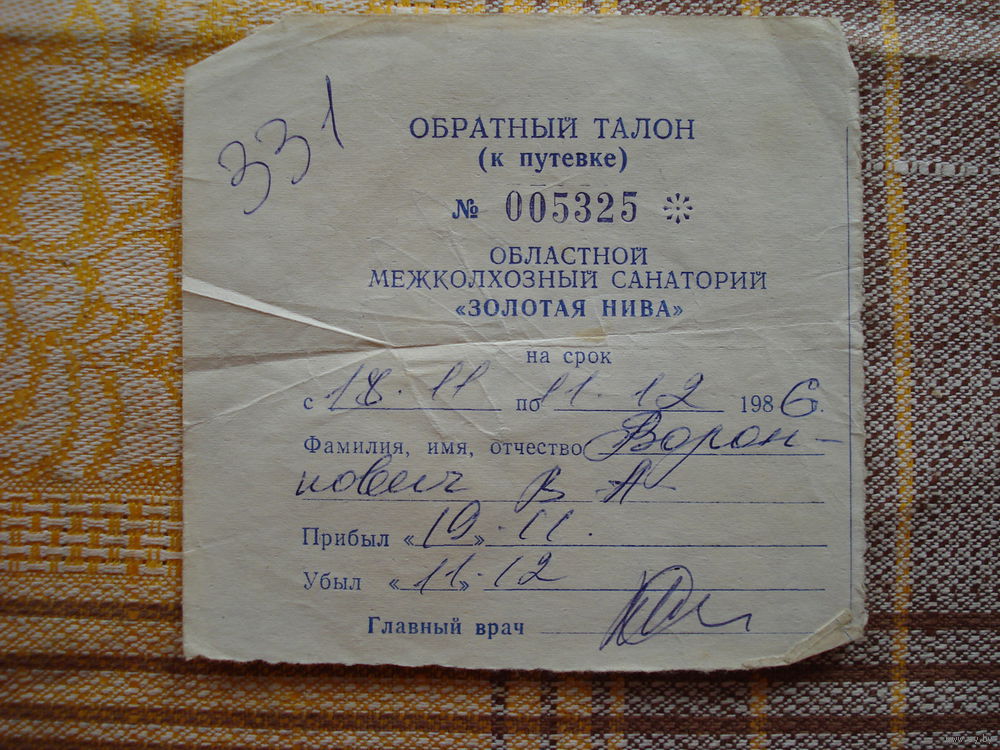 331
ОБРАТНЫЙ ТАЛОН
(к путевке)
№ 005325
ОБЛАСТНОЙ
МЕЖКОЛХОЗНЫЙ САНАТОРИЙ
«ЗОЛОТАЯ НИВА»
на срок
с 18.11 по 11.12 1986.
Фамилия, имя, отчество Ворон-
нович В А
Прибыл «19» 11.
Убыл «11» 12
Главный врач